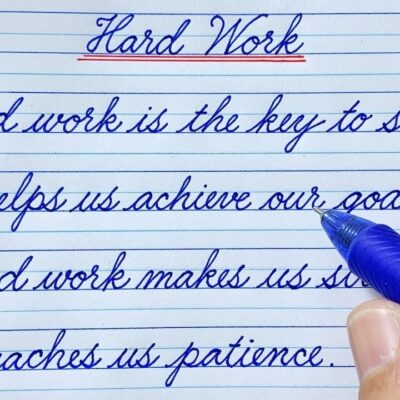 Hard Work
d work is the key to s
elps us achieve our goa
d work makes us
eaches us patience.